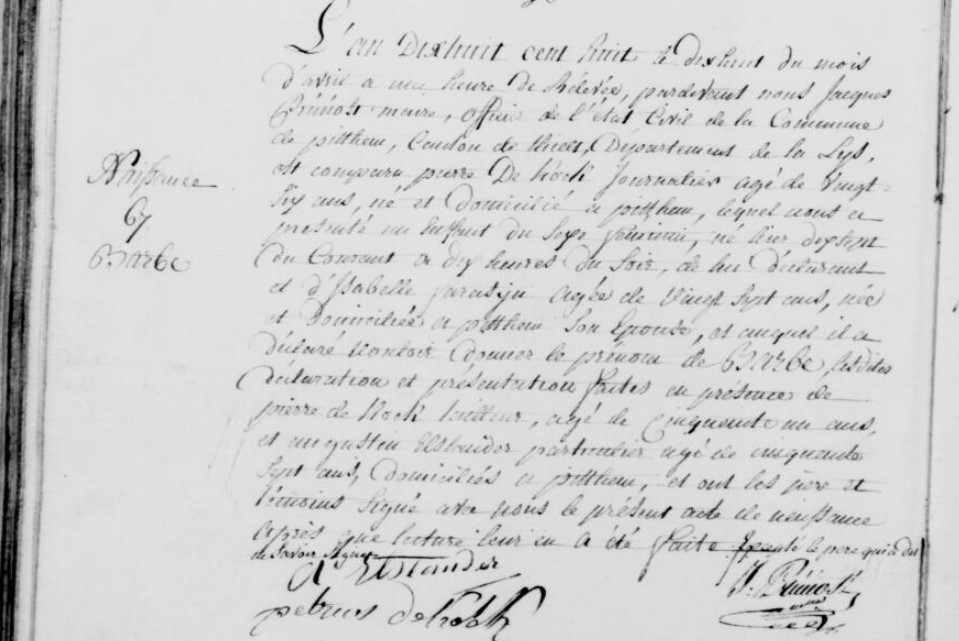 Naissance
67
Barbe
L'an Dixhuit cent huit le dixhuit du mois
d'avril a une heure de Rélevée, pardevant nous Jacques
maire, officier de l'état Civil de la Commune
de pitthem, Canton de thielt, Département de la Lys,
est comparu pierre De Kock Journalier agé de Vingt-
Six ans, né et domicilié a pitthem, lequel nous a
présenté un Enfant du Sexe féminin, né hier dixsept
du Courant a dix heures du Soir, de lui Déclarant
et d'Isabelle agée de Vingt Sept ans, née
et Domiciliée a pitthem Son Epouse, et auquel il a
déclaré Vouloir donner le prénom de Barbe, lesdites
déclaration et présentation faites en présence de
pierre de Kock tailleur, agé de Cinquante un ans,
et augustin Elslander agé de cinquante
Sept ans, Domiciliés a pitthem, et ont les père et
témoins Signé avec nous le présent acte de naissance
après que lecture leur en a été faite Excepté le pere qui a dit
ne Savoir Signer
A Elslander
petrus de kock